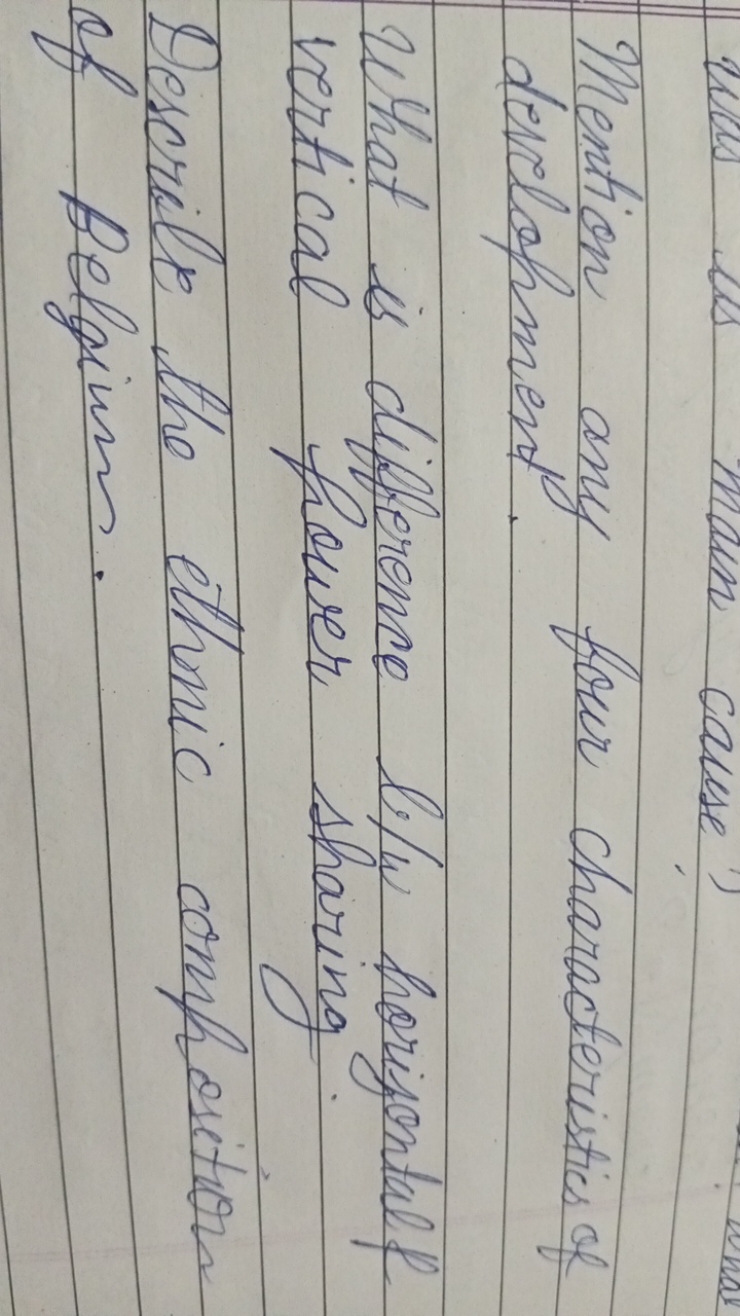 was its main cause?
Mention any four characteristics of
development.
What is difference b/w horizontal &
vertical power sharing
Describe the ethnic composition
of Belgium.